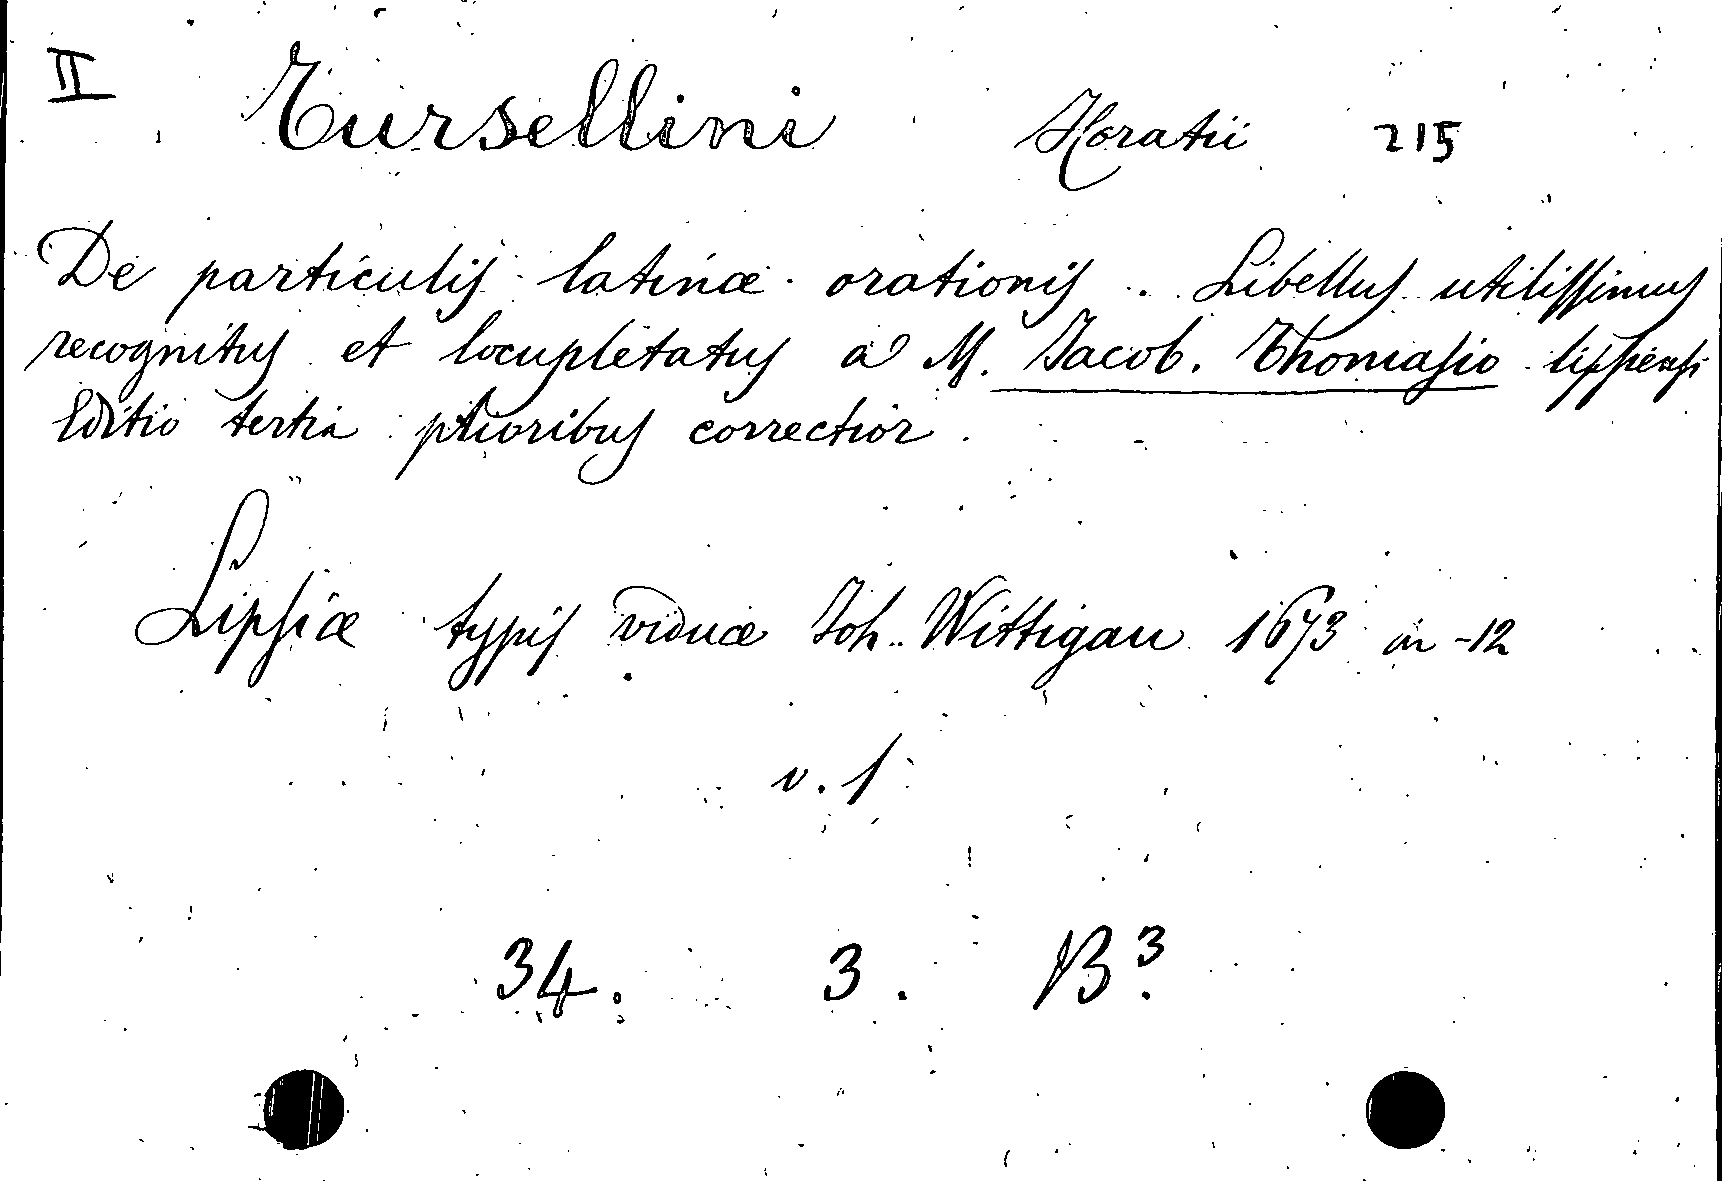 II Tursellini Horatii 215
De particulis latinæ orationis. Libellus utilissimus
recognitus et locupletatus a M. Jacob. Thomasio lipsiensi
Editio tertia prioribus correctior.
Lipsiæ typis viduæ Joh. Wittigau 1673 in-12
v. f
34. 3. B³.